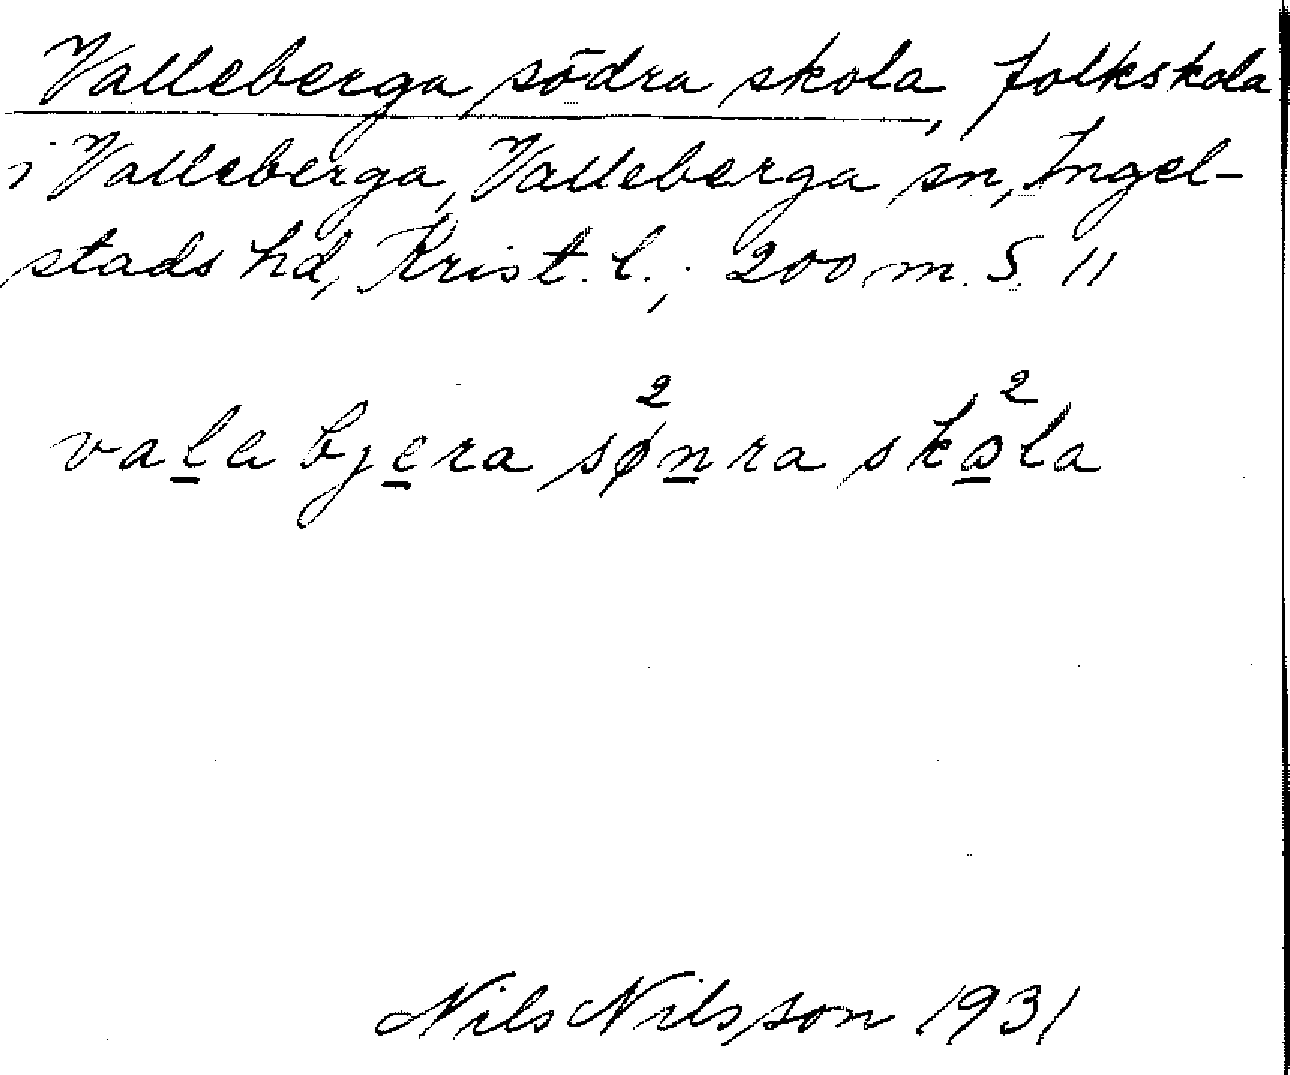 Valleberga södra skola, folkskola
i Valleberga, Valleberga sn, Ingel-
stads hd, Krist. l.; 200 m. S. 11
valabjera sø²nra sko²la
Nils Nilsson 1931